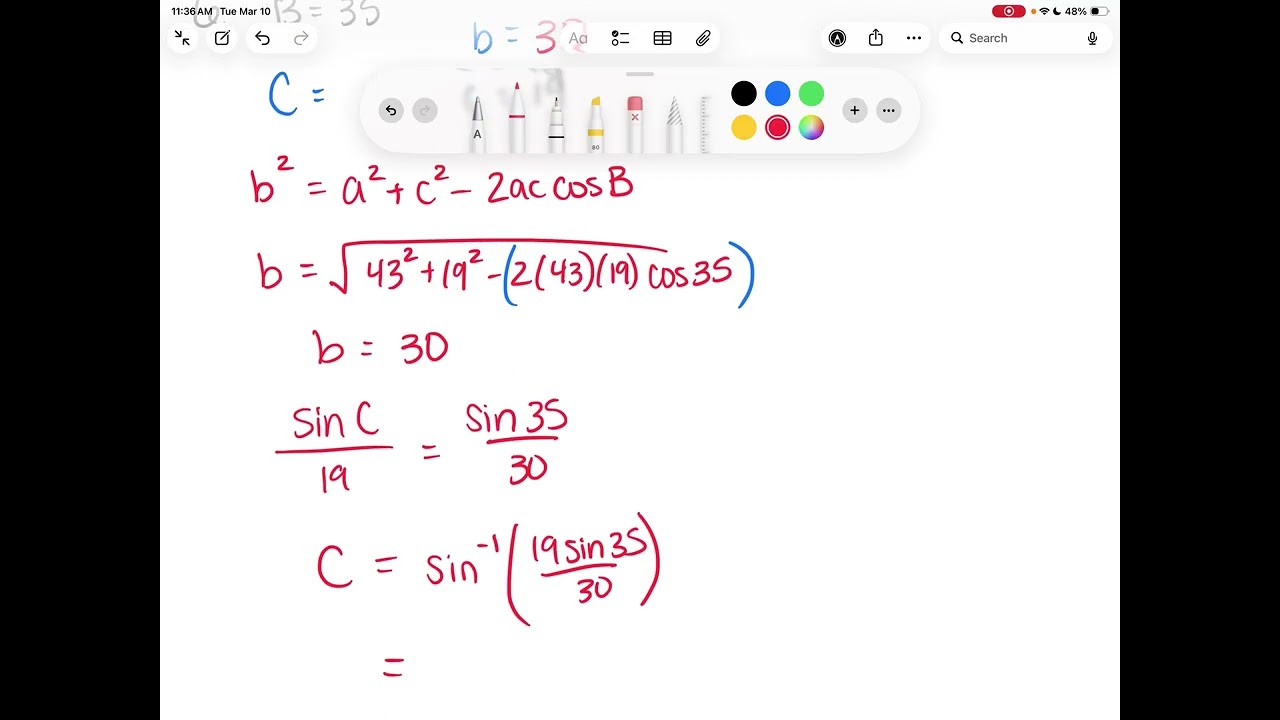 11:36 AM Tue Mar 10
48%
B = 35
b = 3
Aa
Search
C =
A
80
b² = a² + c² - 2ac cos B
b = √43² + 19² - (2(43)(19) cos 35)
b = 30
sin C / 19 = sin 35 / 30
C = sin⁻¹(19 sin 35 / 30)
=